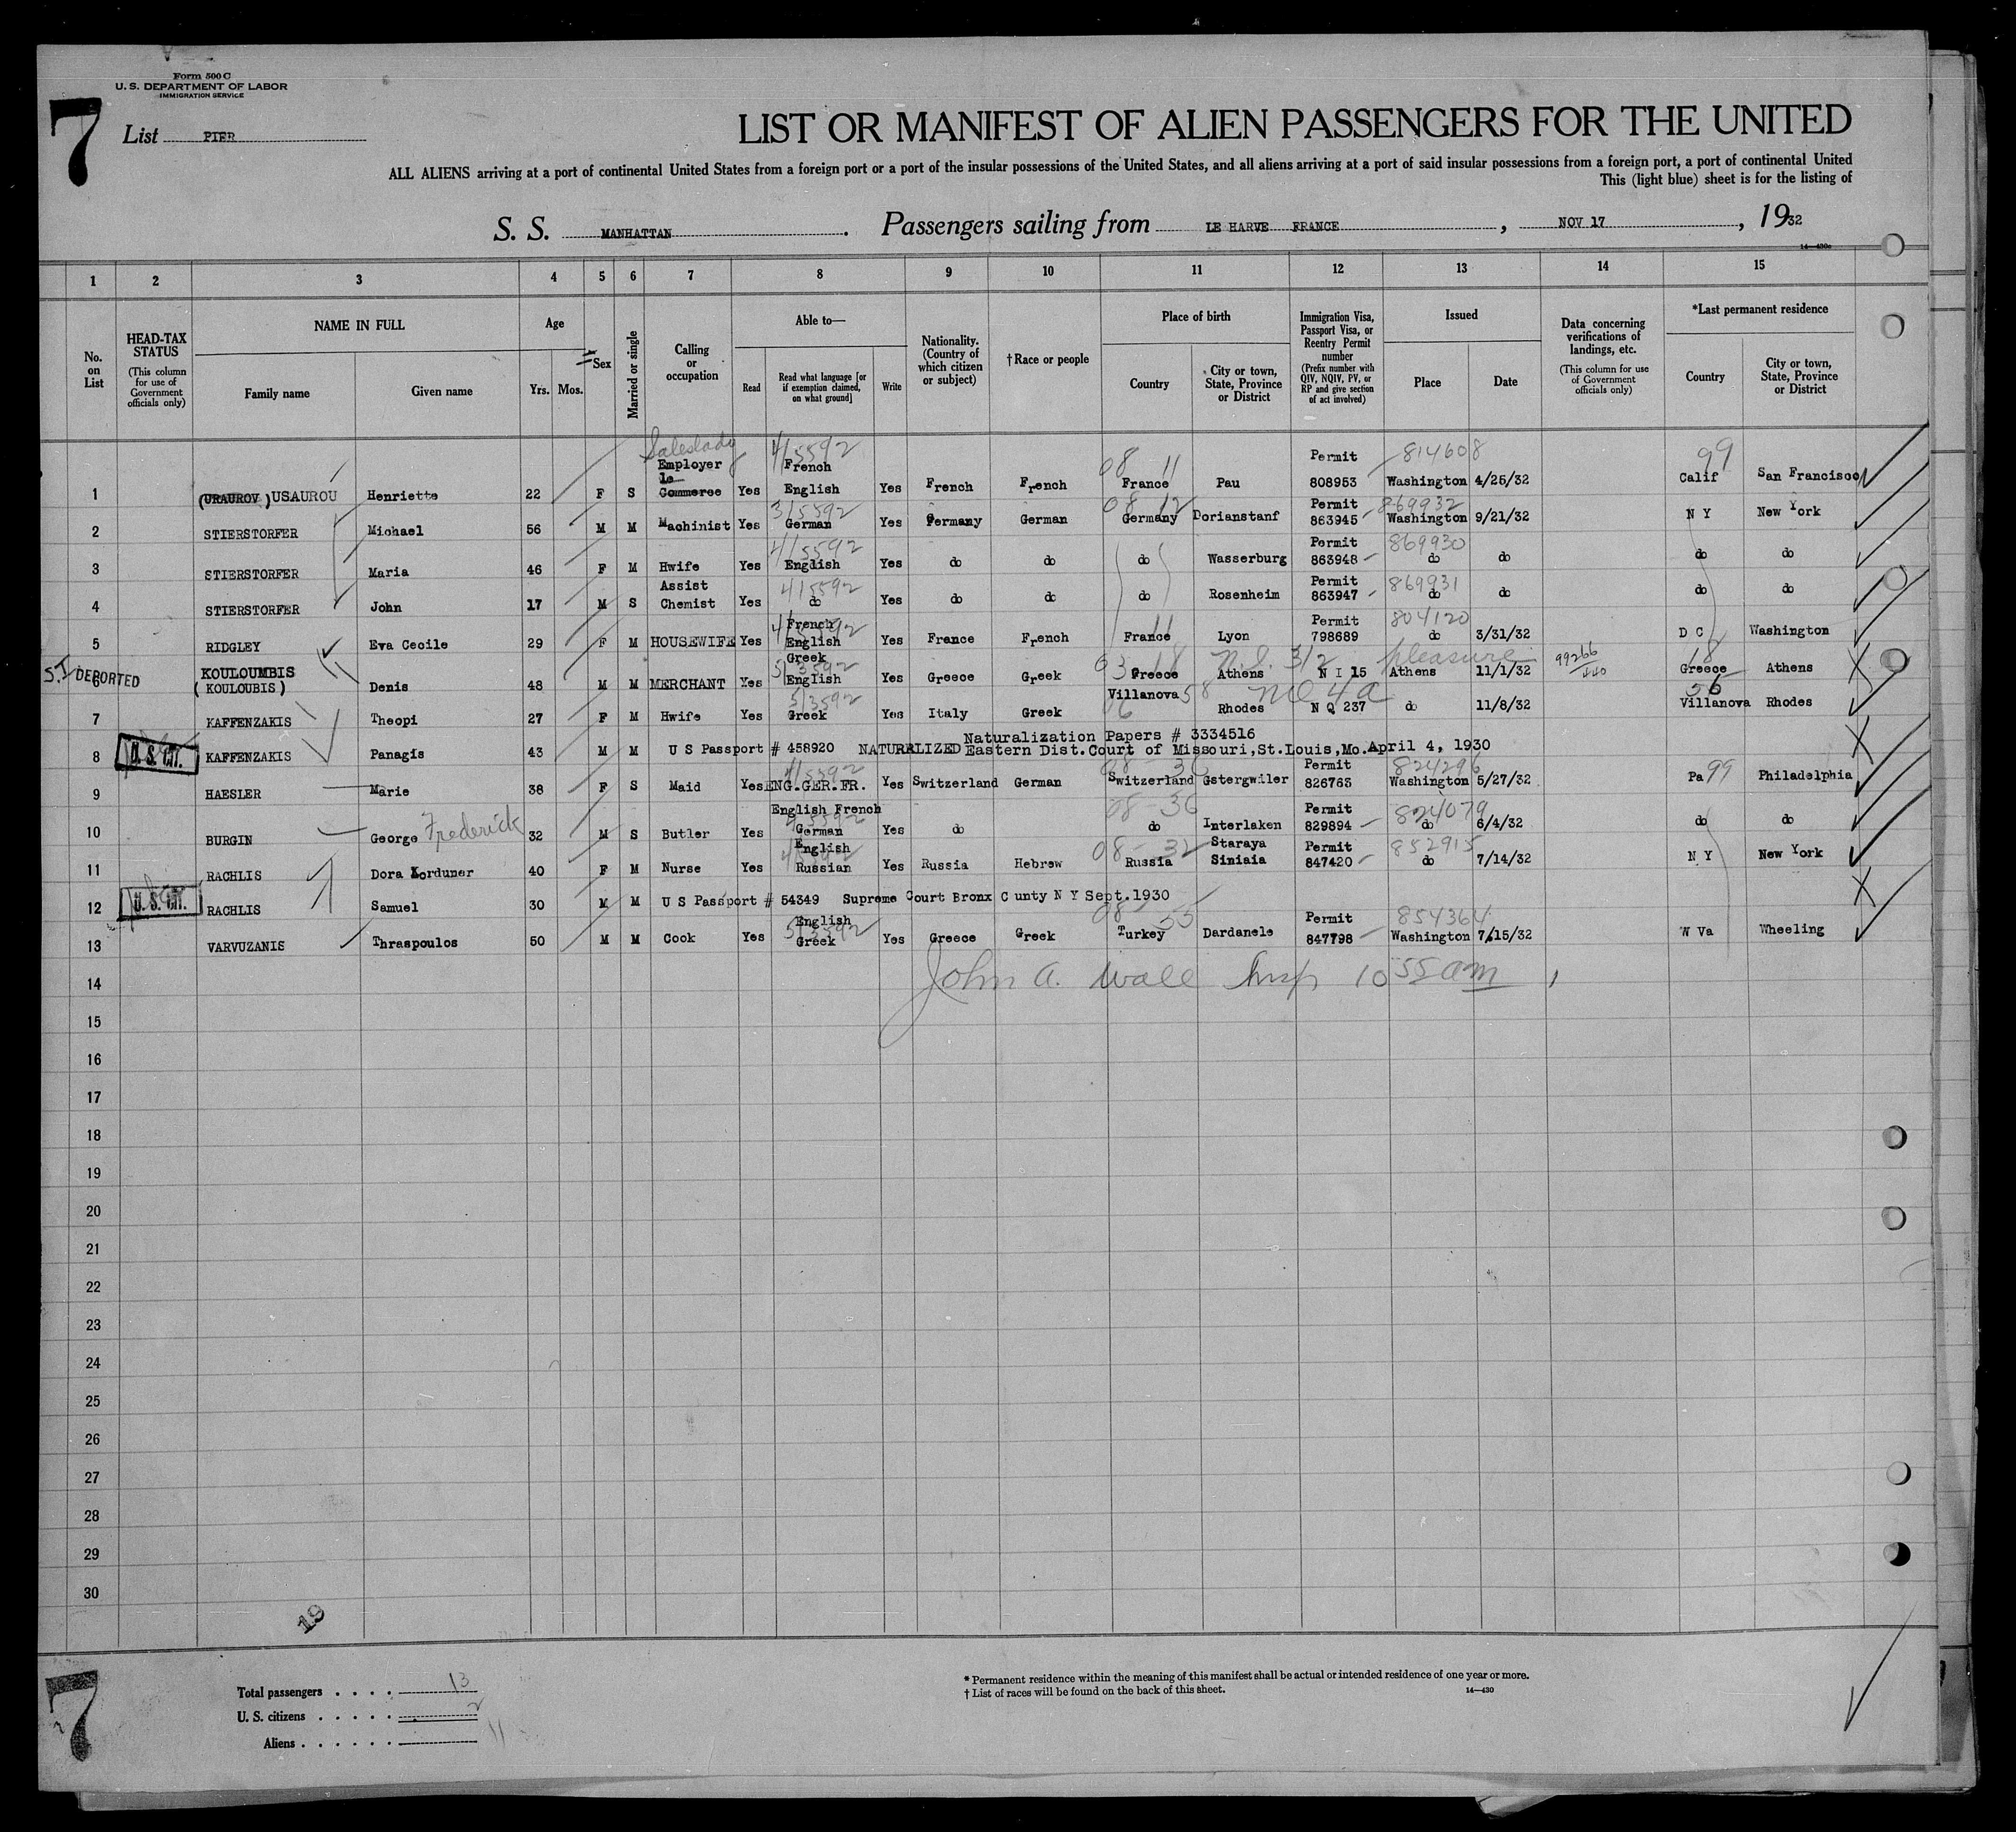 Form 500 C
U. S. DEPARTMENT OF LABOR
IMMIGRATION SERVICE
7
List PIER
LIST OR MANIFEST OF ALIEN PASSENGERS FOR THE UNITED
ALL ALIENS arriving at a port of continental United States from a foreign port or a port of the insular possessions of the United States, and all aliens arriving at a port of said insular possessions from a foreign port, a port of continental United
This (light blue) sheet is for the listing of
S. S. MANHATTAN. Passengers sailing from LE HARVE FRANCE, NOV 17, 1932
14—430c
1 2 3 4 5 6 7 8 9 10 11 12 13 14 15
No. on List
HEAD-TAX STATUS
(This column for use of Government officials only)
NAME IN FULL
Family name
Given name
Age
Yrs. Mos.
Sex
Married or single
Calling or occupation
Able to—
Read
Read what language [or if exemption claimed, on what ground]
Write
Nationality. (Country of which citizen or subject)
†Race or people
Place of birth
Country
City or town, State, Province or District
Immigration Visa, Passport Visa, or Reentry Permit number
(Prefix number with QIV, NQIV, PV, or RP and give section of act involved)
Issued
Place
Date
Data concerning verifications of landings, etc.
(This column for use of Government officials only)
*Last permanent residence
Country
City or town, State, Province or District
Saleslady 4/5592 08 11 814608 99
Employer French Permit
le
1 (URAUROV )USAUROU Henriette 22 F S Commerce Yes English Yes French French France Pau 808953 Washington 4/25/32 Calif San Francisco
3/5592 08 12 Permit 869932
2 STIERSTORFER Michael 56 M M Machinist Yes German Yes Germany German Germany Dorianstanf 863945 Washington 9/21/32 N Y New York
4/5592 Permit 869930
3 STIERSTORFER Maria 46 F M Hwife Yes English Yes do do do Wasserburg 863948 do do do do
Assist 4/5592 Permit 869931
4 STIERSTORFER John 17 M S Chemist Yes do Yes do do do Rosenheim 863947 do do do do
French Permit 804120
5 RIDGLEY Eva Cecile 29 F M HOUSEWIFE Yes English Yes France French France Lyon 798689 do 3/31/32 D C Washington
S.I DEPORTED KOULOUMBIS Greek 03 18 312 pleasure 99266/440 18
6 ( KOULOUBIS ) Denis 48 M M MERCHANT Yes English Yes Greece Greek Greece Athens N I 15 Athens 11/1/32 Greece Athens
5/3592 Villanova 58 4a 56
7 KAFFENZAKIS Theopi 27 F M Hwife Yes Greek Yes Italy Greek Rhodes N Q 237 do 11/8/32 Villanova Rhodes
Naturalization Papers # 3334516
8 U. S. CIT. KAFFENZAKIS Panagis 43 M M U S Passport # 458920 NATURALIZED Eastern Dist.Court of Missouri,St.Louis,Mo.April 4, 1930
4/5592 08 36 Permit 824296
9 HAESLER Marie 38 F S Maid Yes ENG.GER.FR. Yes Switzerland German Switzerland Gstergwiler 826763 Washington 5/27/32 Pa 99 Philadelphia
English French 08-36 Permit 824079
10 BURGIN George Frederick 32 M S Butler Yes German Yes do do Interlaken 829894 do 6/4/32 do do
English 08-32 Staraya Permit 852915
11 RACHLIS Dora Korduner 40 F M Nurse Yes Russian Yes Russia Hebrew Russia Siniaia 847420 do 7/14/32 N Y New York
12 U. S. CIT. RACHLIS Samuel 30 M M U S Passport # 54349 Supreme Court Bronx C unty N Y Sept.1930
English 08 55 Permit 854364
13 VARVUZANIS Thraspoulos 50 M M Cook Yes Greek 5/3592 Yes Greece Greek Turkey Dardanele 847798 Washington 7/15/32 W Va Wheeling
14 John A. Wall Insp 10 55 am
15
16
17
18
19
20
21
22
23
24
25
26
27
28
29
30
19
7
Total passengers . . . . 13
U. S. citizens . . . . . 2
Aliens . . . . . . 11
* Permanent residence within the meaning of this manifest shall be actual or intended residence of one year or more.
† List of races will be found on the back of this sheet.
14—430